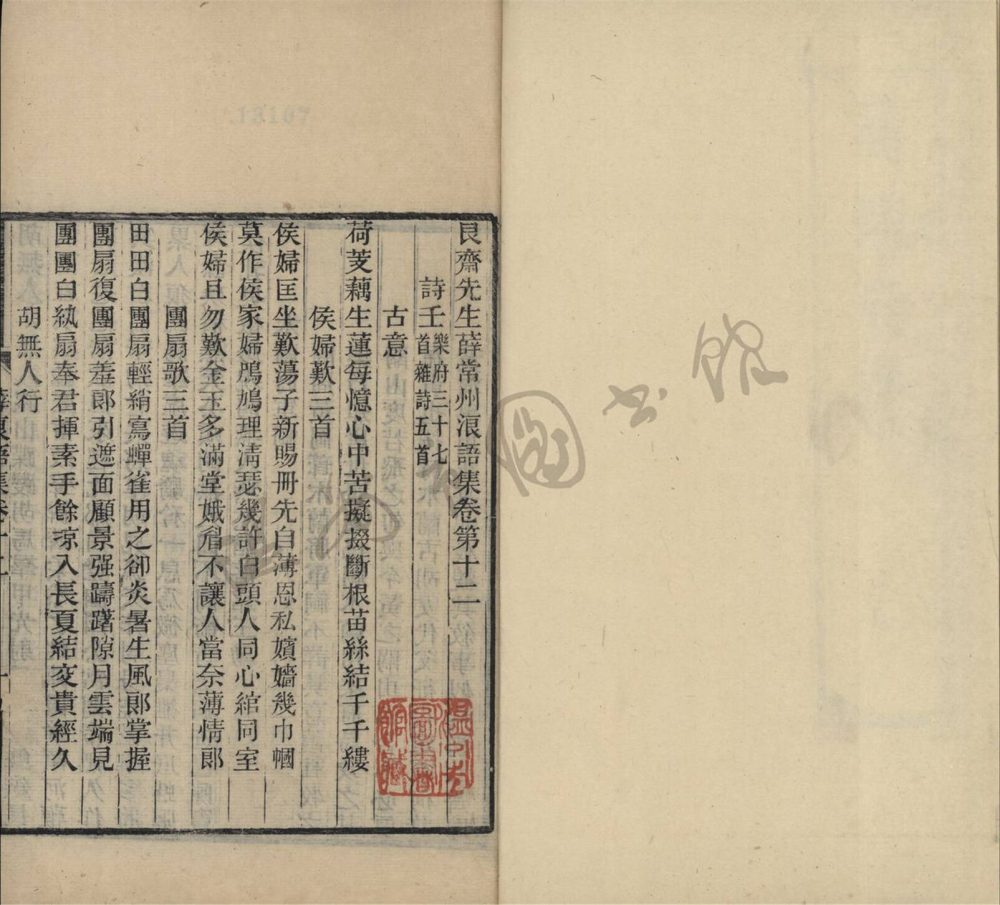 艮齋先生薛常州浪語集卷第十二
詩壬樂府三十七首雜詩五首
古意
荷芰藕生蓮每憶心中苦擬掇斷根苗絲結千千縷
侯婦歎三首
侯婦匡坐歎蕩子新賜冊先白薄恩私嬪嬙幾巾幗
莫作侯家婦鳲鳩理淸瑟幾許白頭人同心綰同室
侯婦且勿歎金玉多滿堂娥眉不讓人當奈薄情郞
團扇歌三首
田田白團扇輕綃寫蟬雀用之卻炎暑生風郞掌握
團扇復團扇羞郞引遮面顧景强躊躇隙月雲端見
團團白紈扇奉君揮素手餘凉入長夏結交貴經久
胡無人行
浪語集卷十二
一
18107
圖書館
圖書館藏